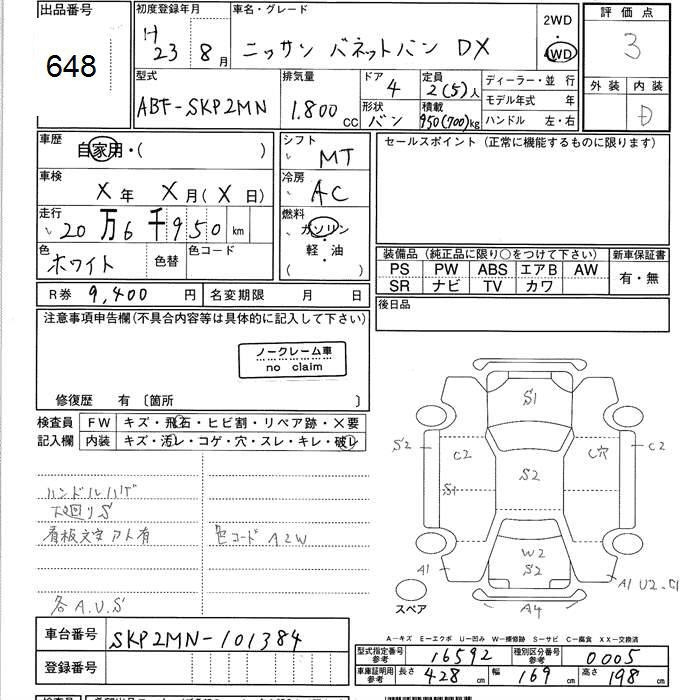 出品番号
648
初度登録年月
H 23 8月
車名・グレード
ニッサン バネットバン DX
2WD
・
4WD
評価点
3
外装 内装
D
型式
ABF-SKP2MN
排気量
1.800 CC
ドア
4
形状
バン
定員
2(5)人
積載
950(700)kg
ディーラー・並 行
モデル年式 年
ハンドル 左・右
車歴
自家用・( )
車検
X年 X月(X日)
走行
20万6千950km
色
ホワイト
色替
色コード
シフト
MT
冷房
AC
燃料
ガソリン
・
軽・油
( )
セールスポイント(正常に機能するものに限ります)
装備品(純正品に限り○をつけて下さい)
PS PW ABS エアB AW
SR ナビ TV カワ
新車保証書
有・無
後日品
R券 9,400円
名変期限 月 日
注意事項申告欄(不具合内容等は具体的に記入して下さい)
ノークレーム車
no claim
修復歴 有〔箇所 〕
検査員
記入欄
FW キズ・飛石・ヒビ割・リペア跡・×要
内装 キズ・汚レ・コゲ・穴・スレ・キレ・破レ
ハンドルハゲ
下廻りS
看板文字アト有
色コード A2W
各A.U.S
S1
S2 C2 C穴 C2
S1 S2
W2
S2
A1 A1 U2.C1
A4
スペア
A－キズ E－エクボ U－凹み W－補修跡 S－サビ C－腐食 XX－交換済
車台番号
SKP2MN-101384
登録番号
型式指定番号
参考
16592
種別区分番号
参考
0005
車庫証明用
参考
長さ 428cm 幅 169cm 高さ 198cm